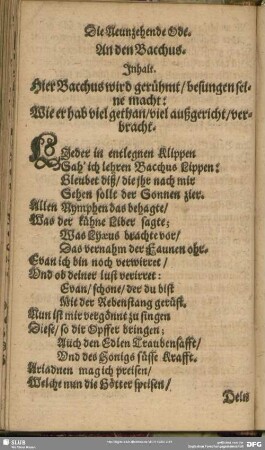 Die Neunzehende Ode.
An den Bacchus.
Inhalt.
Hier Bacchus wird gerühmt/ besungen sei-
ne macht:
Wie er hab viel gethan/ viel außgericht/ ver-
bracht.
Lieder in entlegnen Klippen
Sah' ich lehren Bacchus Lippen:
Gleubet diß/ die jhr nach mir
Sehen sollt der Sonnen zier.
Allen Nymphen das behagte/
Was der kühne Liber sagte;
Was Lyæus brachte vor/
Das vernahm der Faunen ohr.
Evan ich bin noch verwirret/
Und ob deiner lust verirret:
Evan/ schone/ der du bist
Mit der Rebenstang gerüst.
Nun ist mir vergönnt zu singen
Diese/ so dir Opffer bringen;
Auch den Edlen Traubensafft/
Und des Honigs süsse Krafft.
Ariadnen mag ich preisen/
Welche nun die Götter speisen/
Dein
SLUB
DFG